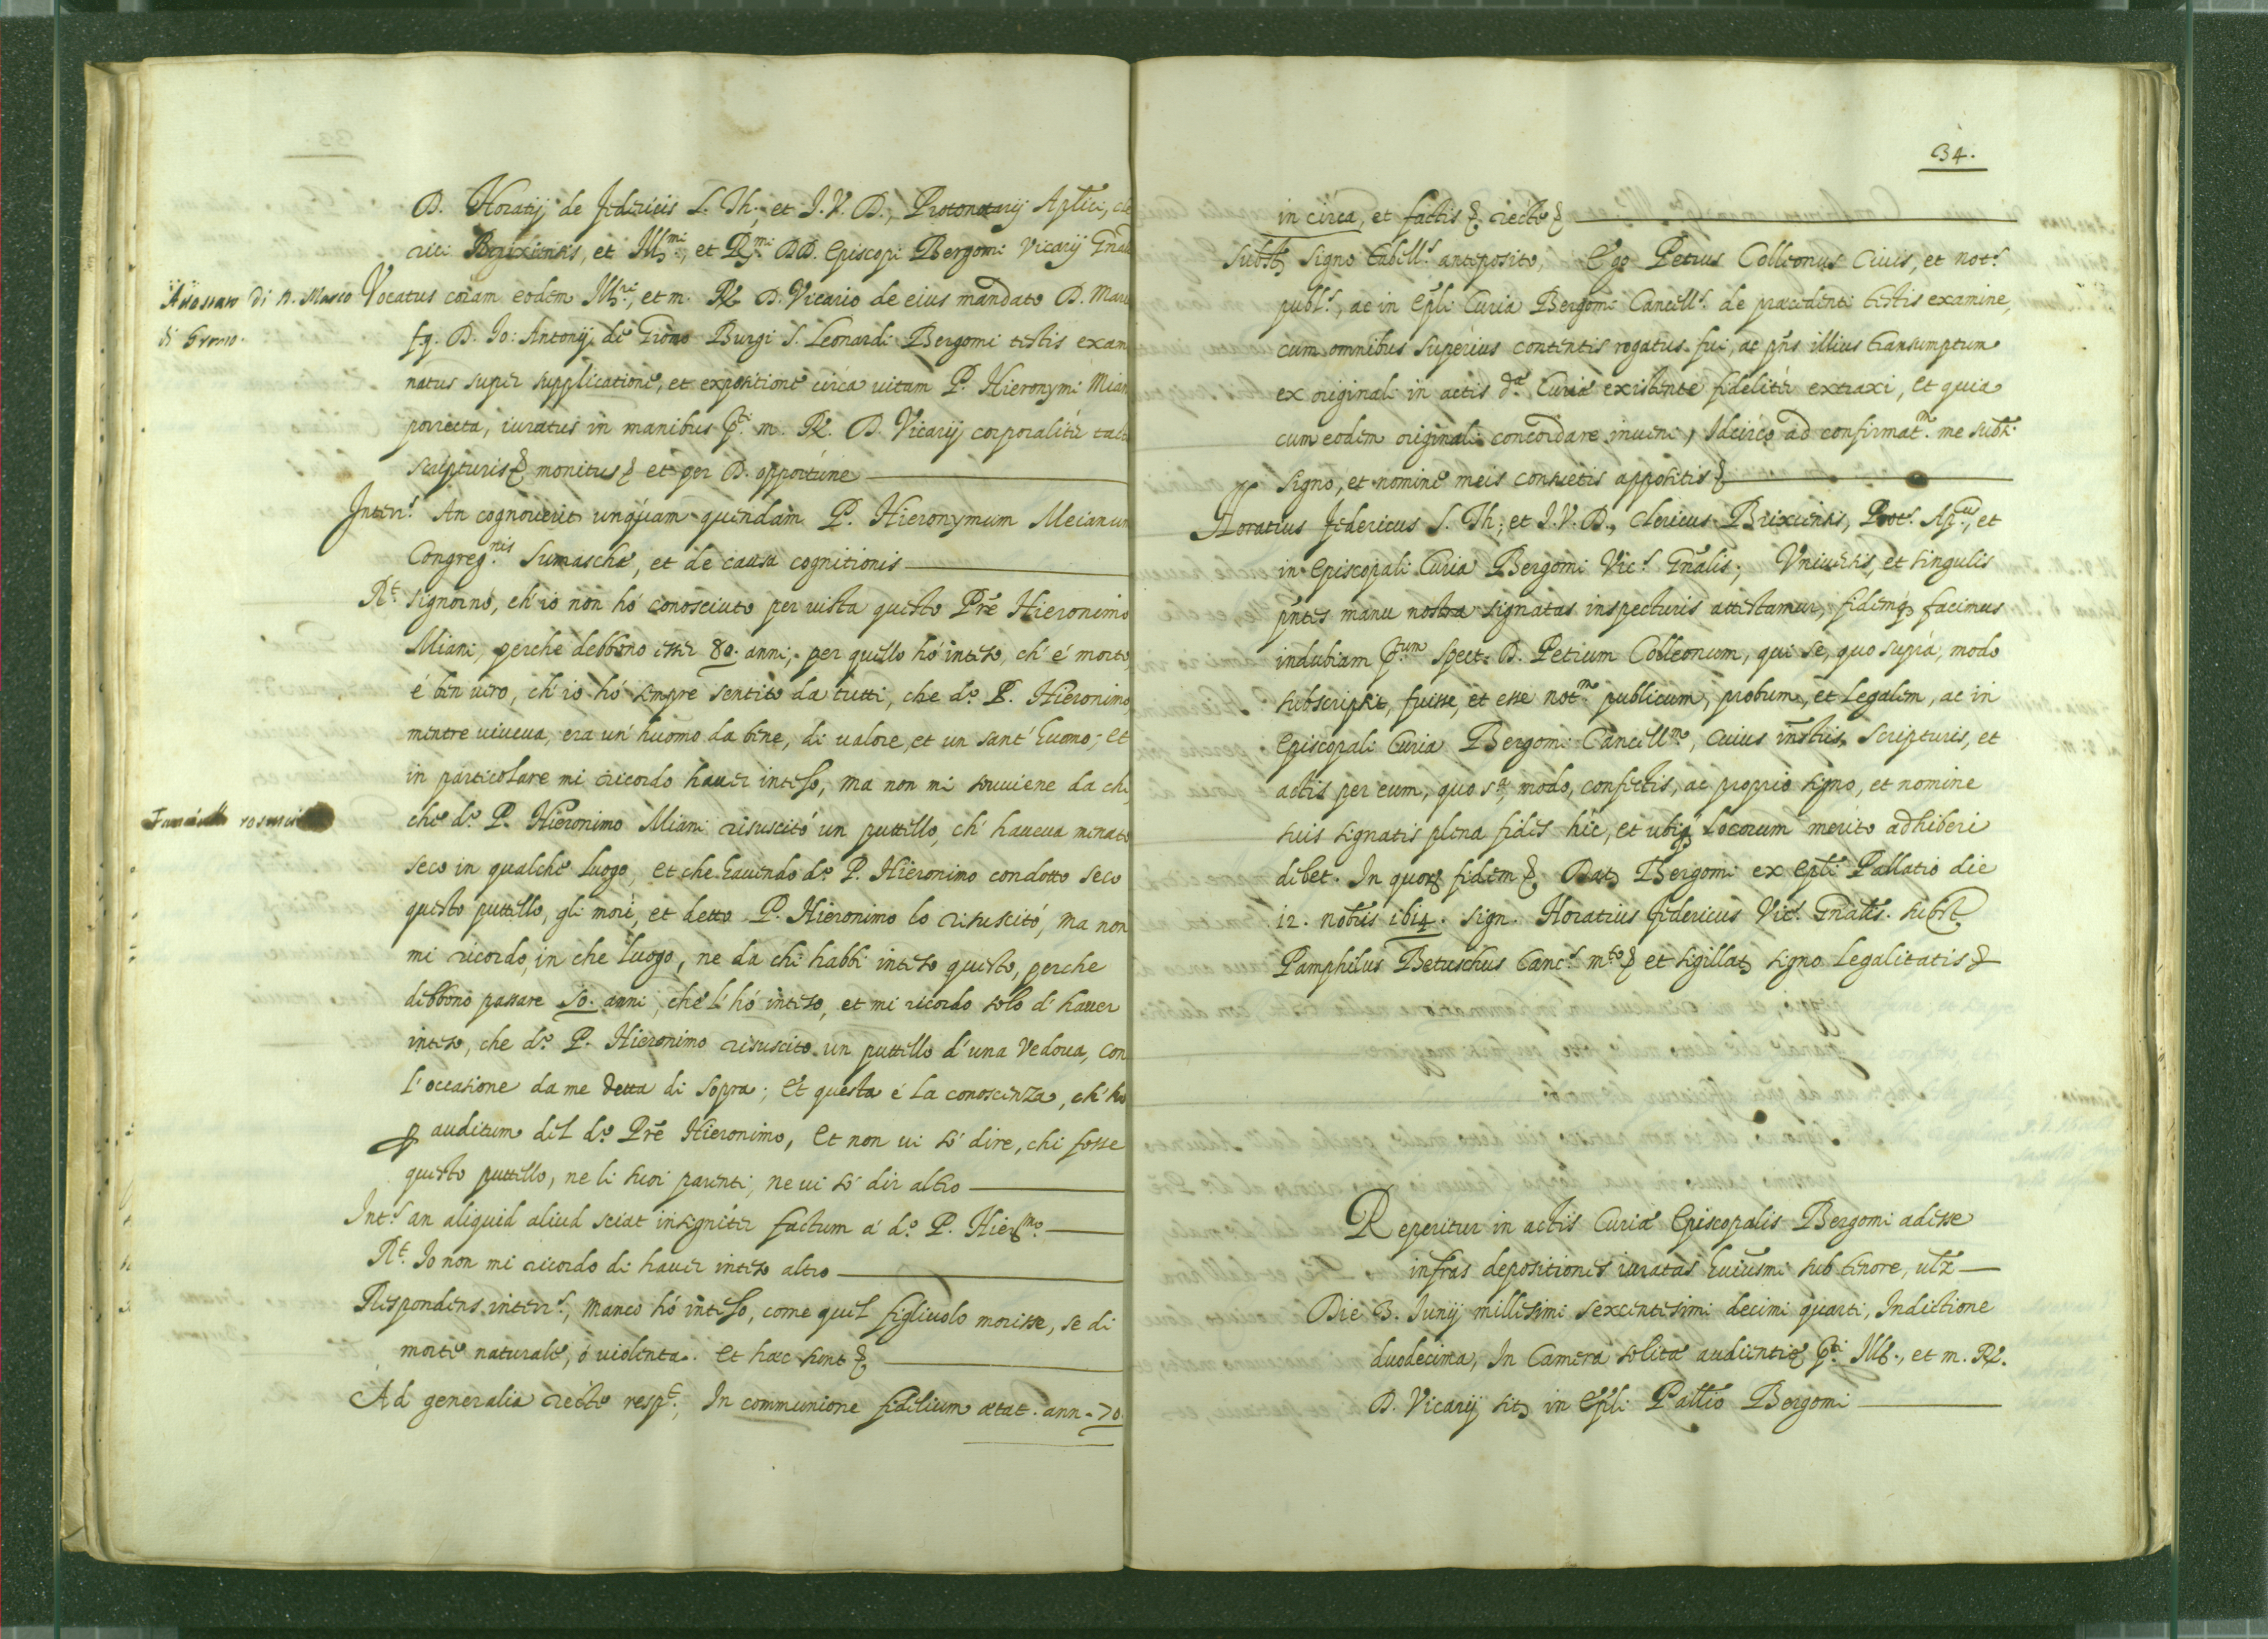 D. Horatij de Federicis S. Th., et I. V. D., Protonotarij Aplici, cle
rici Brixiensis, et Ill.mi, et R.mi DD. Episcopi Bergomi Vicarij Gnalis
Attestato di D. Marco
di Gromo.
Vocatus coram eodem Ill.ri, et m. R. D. Vicario de eius mandato D. Marc
f.q. D. Io: Antonij de Gromo Burgi S. Leonardi Bergomi testis exam
natus super supplicatione, et expositione circa uitam P. Hieronymi Mian
porrecta, iuratus in manibus p.ti m. R. D. Vicarij corporaliter tact
scripturis & monitus & et per D. opportune
Inter.s An cognouerit unquam quendam P. Hieronymum Meianum
Congreg.nis Sumaschæ, et de causa cognitionis
R.t Signornò, ch'io non hò conosciuto per uista questo Prē Hieronimo
Miani, perche debbono esser 80. anni, per quello hò inteso, ch'è morto
è ben uero, ch'io hò sempre sentito da tutti, che d.o P. Hieronimo
mentre uiueua, era un'huomo da bene, di ualore, et un sant'huomo; et
in particolare mi ricordo hauer inteso, ma non mi souuiene da chi,
Fanciullo
che d.o P. Hieronimo Miani risuscitò un puttello, ch'haueua menato
seco in qualche luogo, et che hauendo d.o P. Hieronimo condotto seco
questo puttello, gli morì, et detto P. Hieronimo lo risuscitò, ma non
mi ricordo, in che luogo, ne da chi habbi inteso questo, perche
debbono passare 50. anni, che l'hò inteso, et mi ricordo solo d'hauer
inteso, che d.o P. Hieronimo risuscitò un puttello d'una Vedoua, con
l'occasione da me detta di sopra; et questa è la conoscenza, ch'hò
p auditum del d.o Prē Hieronimo, et non ui sò dire, chi fosse
questo puttello, ne li suoi parenti, ne ui sò dir altro
Int.s an aliquid aliud sciat insigniter factum à d.o P. Hier.mo
R.t Io non mi ricordo di hauer inteso altro
Respondens inter.s, manco hò inteso, come quel figliuolo morisse, se di
morte naturale, ò uiolenta. et hæc sunt &
Ad generalia recte resp.t, In communione fidelium ætat. ann. 70.
34.
in circa, et factis & recte &
Subst. Signo tabell.s anteposito, Ego Petrus Colleonus Ciuis, et not.s
publ.s, ac in Epli Curia Bergomi Cancell.s de præcedenti testis examine,
cum omnibus superius contentis rogatus fui, ac pñs illius transumptum
ex originali in actis d.æ Curiæ existente fideliter extraxi, et quia
cum eodem originali concordare inueni, Idcirco ad confirmat.m me subs.
signo, et nomine meis consuetis appositis &
Horatius Federicus S. Th., et I. V. D., Clericus Brixiensis, Prot.s Ap.cus, et
in Episcopali Curia Bergomi Vic.s Gnalis, Vniuersis, et singulis
pñtes manu nostra signatas inspecturis attestamur, fidemq3 facimus
indubiam p.tum Spect. D. Petrum Colleonum, qui se, quo supra, modo
subscripsit, fuisse, et esse not.m publicum, probum, et legalem, ac in
Episcopali Curia Bergomi Cancell.m, cuius instis, scripturis, et
actis per eum, quo s.a, modo, confectis, ac proprio signo, et nomine
suis signatis plena fides hic, et ubiq3 locorum merito adhiberi
debet. In quor fidem & Dat Bergomi ex Epli Pallatio die
12. nobris 1614. sign. Horatius Federicus Vic.s Gnalis. subst.
Pamphilus Betuschus Canc.s m.to & et sigillat signo Legalitatis &
Reperitur in actis Curiæ Episcopalis Bergomi adesse
infras depositiones iuratas huiusmi sub tenore, utz
Die 3. Iunij millesimi sexcentesimi decimi quarti, Indictione
duodecima, In Camera solita audientiæ p.ti Ill., et m. R.
D. Vicarij sit in Epli Pallio Bergomi